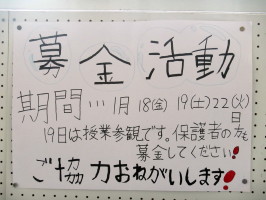 募金活動
期間…1月18(金)19(土)22(火)
19日は授業参観です。保護者の方も
募金してください!
ご協力おねがいします!